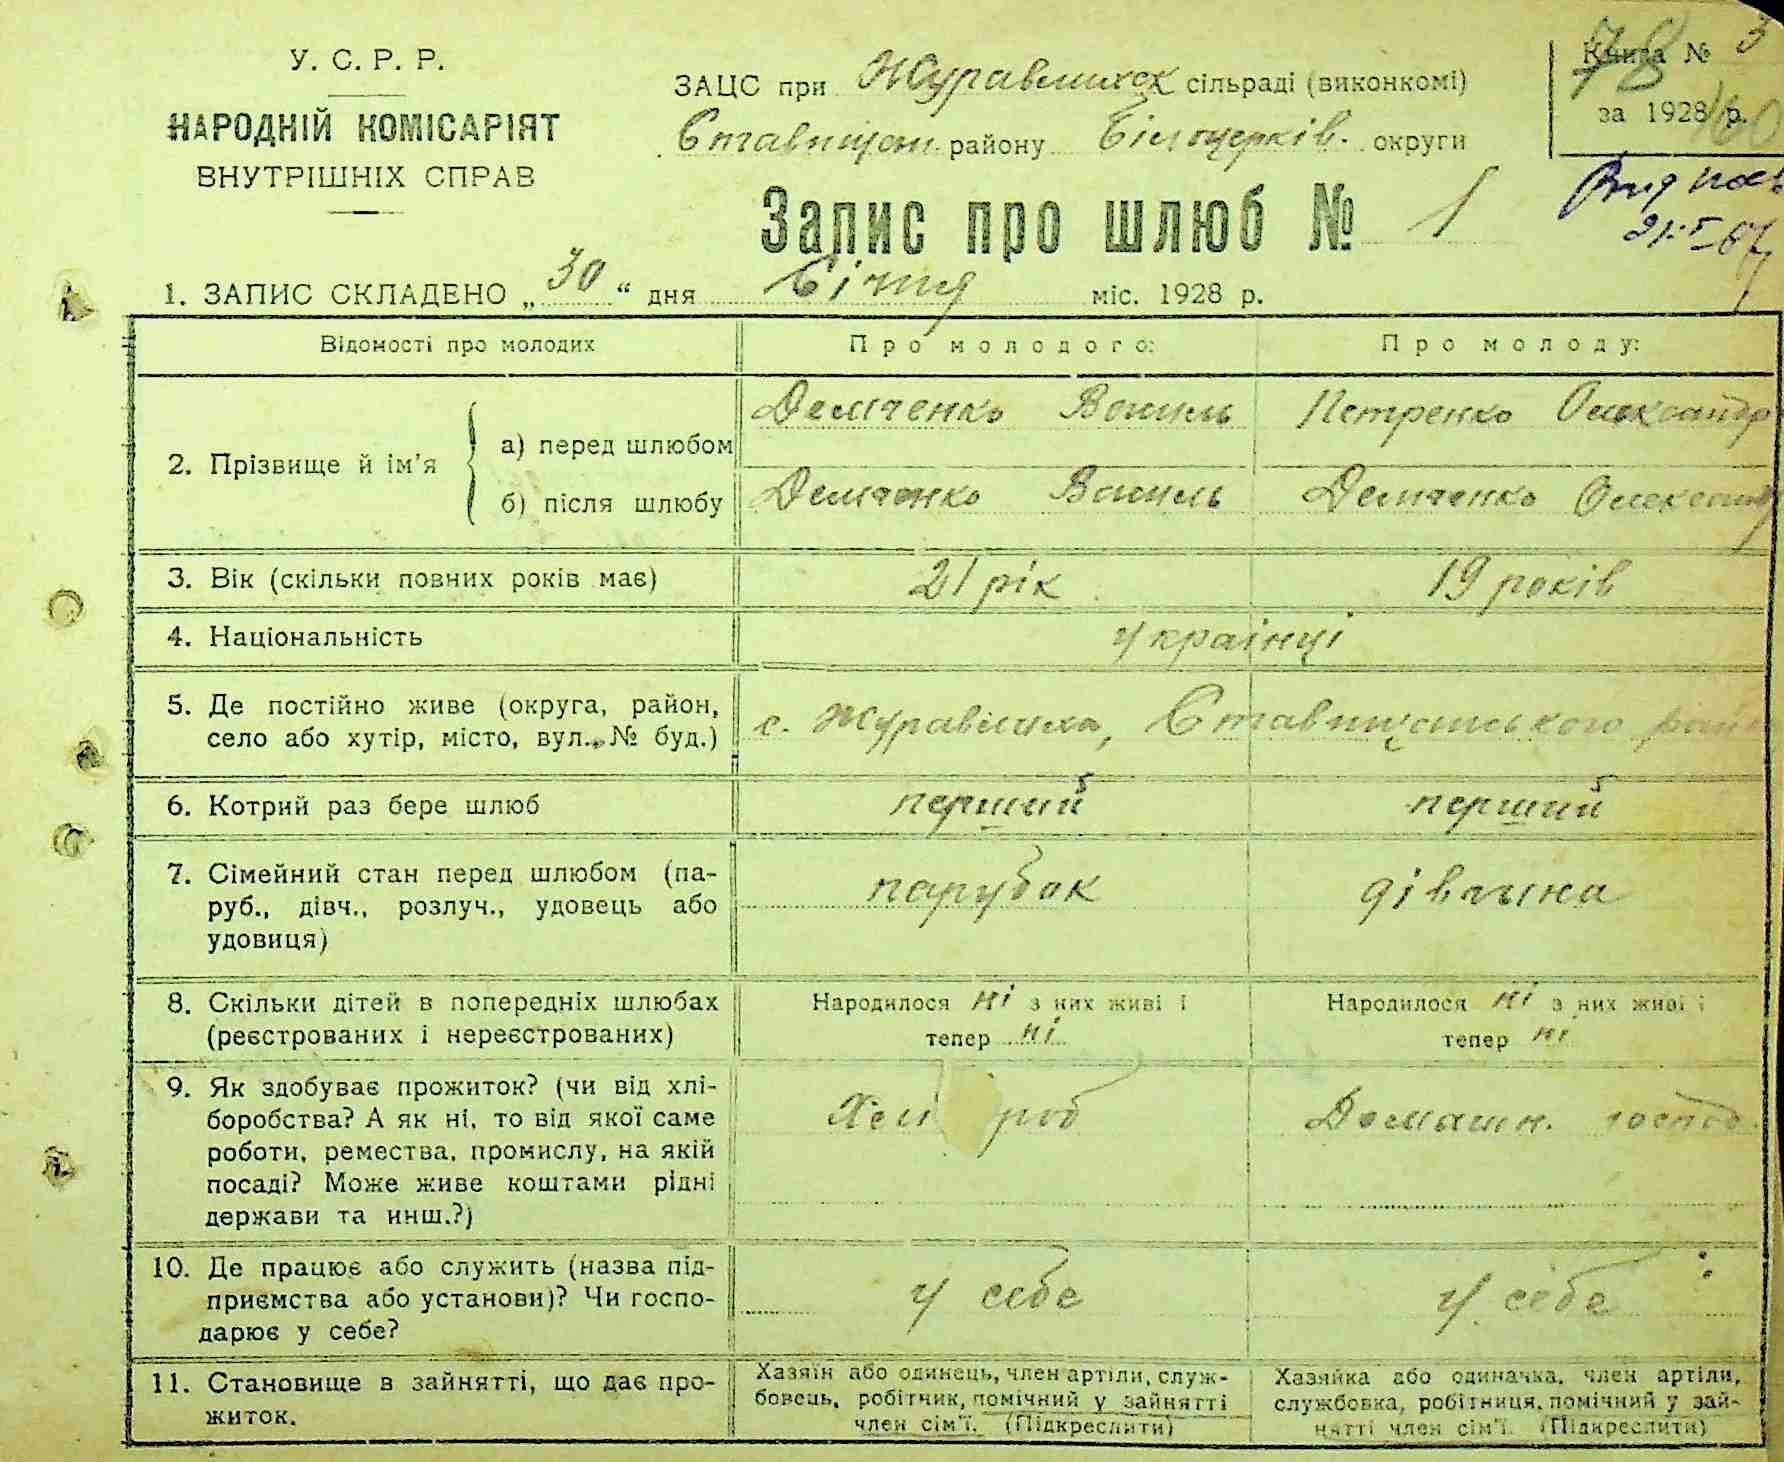 У. С. Р. Р.
НАРОДНІЙ КОМІСАРІЯТ
ВНУТРІШНІХ СПРАВ
ЗАЦС при Журавлихск сільраді (виконкомі)
Ставищан. району Білоцерків. округи
Книга № 3
78
за 1928 р.
160
Запис про шлюб № 1
21-I-67
1. ЗАПИС СКЛАДЕНО „30“ дня Січня міс. 1928 р.
Відомості про молодих
Про молодого:
Про молоду:
2. Прізвище й ім’я
а) перед шлюбом
Демченко Василь
Петренко Олександр
б) після шлюбу
Демченко Василь
Демченко Олександ
3. Вік (скільки повних років має)
21 рік
19 років
4. Національність
українці
5. Де постійно живе (округа, район,
село або хутір, місто, вул., № буд.)
с. Журавлиха, Ставищанського рай
6. Котрий раз бере шлюб
перший
перший
7. Сімейний стан перед шлюбом (па-
руб., дівч., розлуч., удовець або
удовиця)
парубок
дівчина
8. Скільки дітей в попередніх шлюбах
(реєстрованих і нереєстрованих)
Народилося ні з них живі і
тепер ні
Народилося ні з них живі і
тепер ні
9. Як здобуває прожиток? (чи від хлі-
боробства? А як ні, то від якої саме
роботи, ремества, промислу, на якій
посаді? Може живе коштами рідні
держави та инш.?)
Хлі роб
Домашн. господ.
10. Де працює або служить (назва під-
приємства або установи)? Чи госпо-
дарює у себе?
У себе
У себе
11. Становище в зайнятті, що дає про-
житок.
Хазяїн або одинець, член артіли, служ-
бовець, робітчик, помічний у зайнятті
член сім’ї. (Підкреслити)
Хазяйка або одиначка, член артіли,
службовка, робітниця, помічний у зай-
нятті член сім’ї. (Підкреслити)